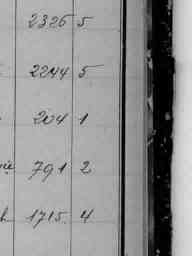 2326 5
2244 5
204 1
791 2
1715. 4